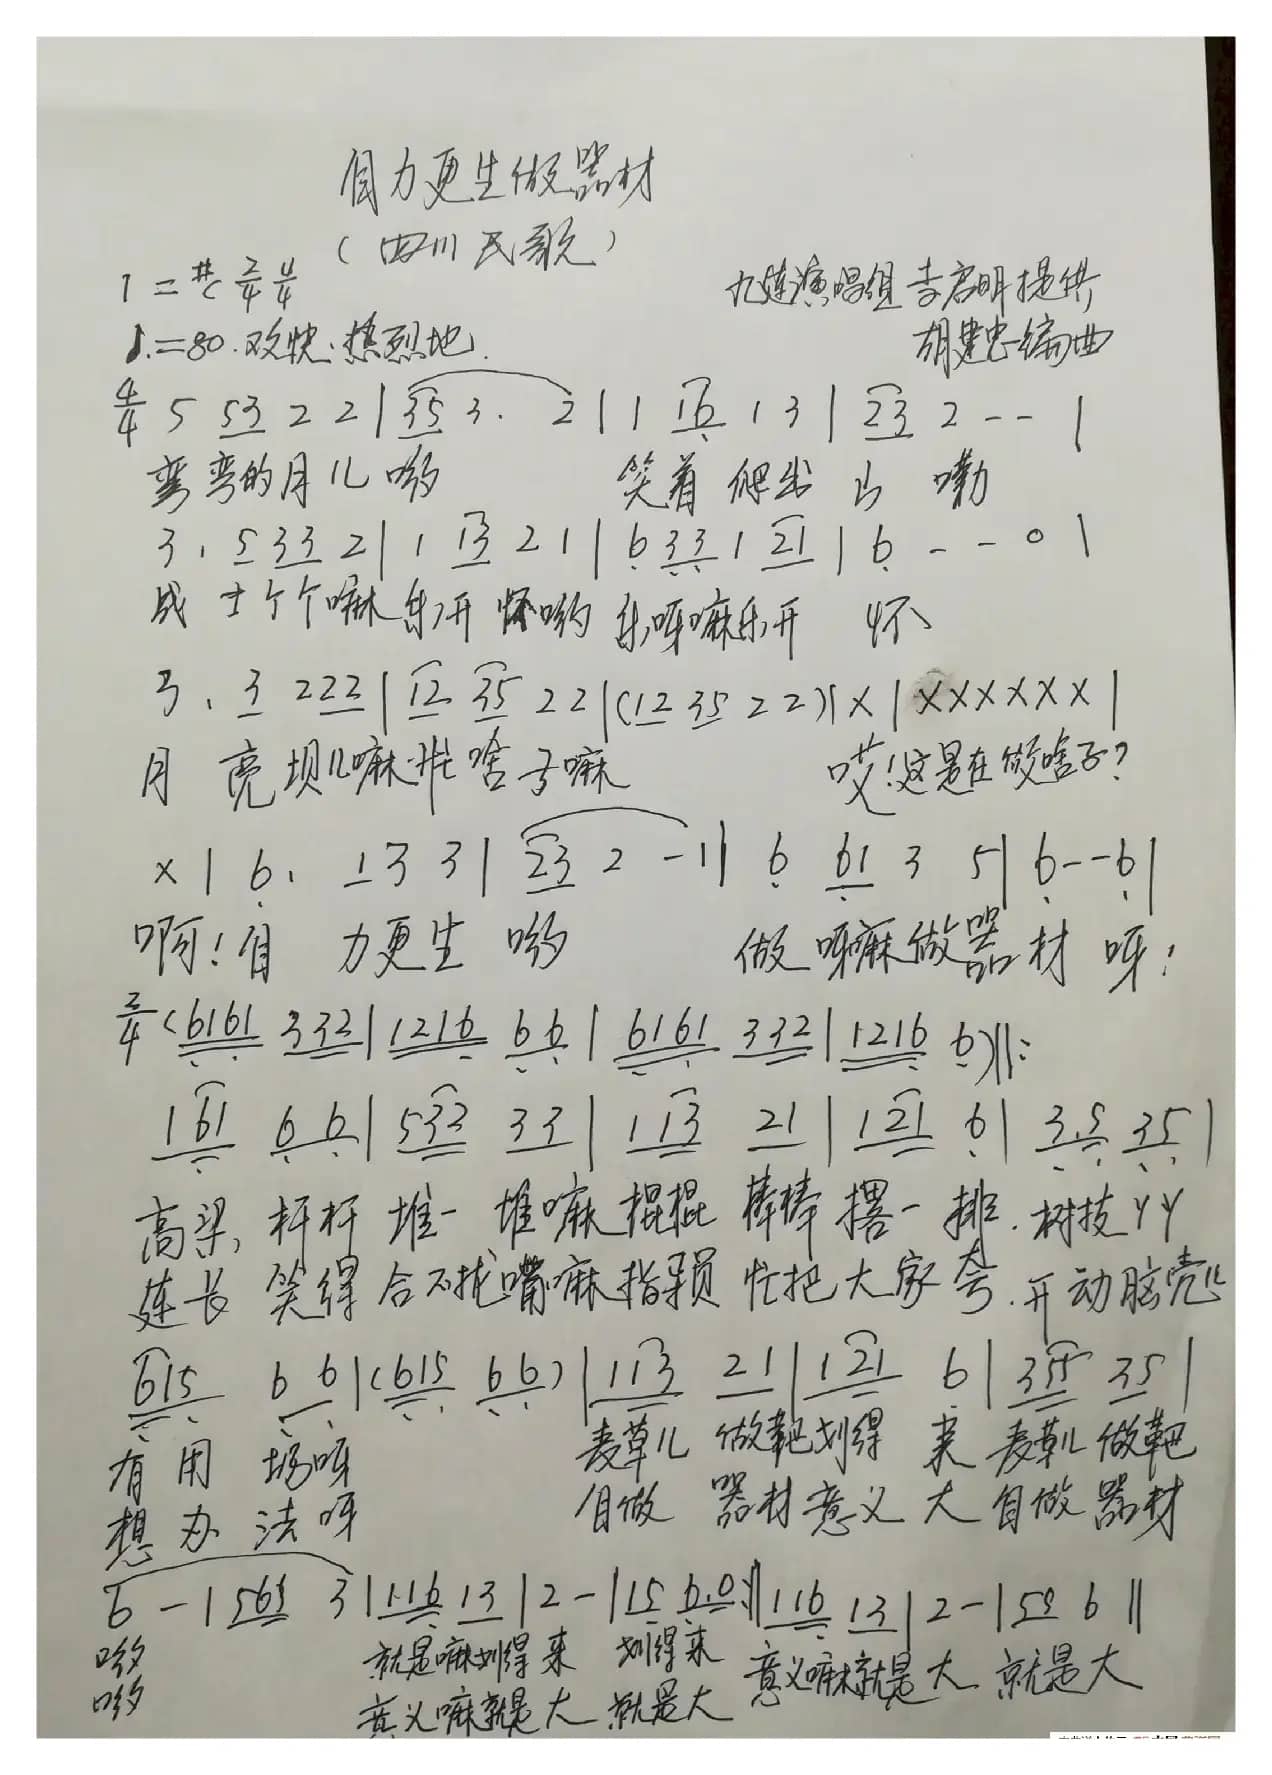 自力更生做器材
(四川民歌)
1=#C 2/4 4/4
九连演唱组李启明提供
♩.=80.欢快.热烈地.
胡建忠编曲
4/4 5 53 2 2 | 35 3. 2 | 1 16 1 3 | 23 2 - - |
弯弯的月儿哟 笑着爬出山嘞
3. 5 33 2 | 1 13 2 1 | 6 33 1 21 | 6 - - 0 |
战士个个嘛乐开怀哟 乐呀嘛乐开怀
3. 3 2 22 | 12 35 2 2 | (12 35 2 2) | X | X X X X X X |
月亮坝儿嘛忙啥子嘛 哎!这是在做啥子?
X | 6. 1 3 3 | 23 2 - 1 || 6 61 3 5 | 6 - - 6 |
啊!自力更生哟 做呀嘛做器材呀!
2/4 (6161 332 | 1216 66 | 6161 332 | 1216 6) ||:
161 66 | 533 33 | 113 21 | 121 6 | 3.5 35 |
高梁,杆杆堆一堆嘛棍棍棒棒撂一排.树技丫丫
连长笑得合不拢嘴嘛指导员忙把大家夸.开动脑壳儿
615 66 | (615 66) | 113 21 | 121 6 | 355 35 |
有用场呀 麦草儿做靶划得来麦草儿做靶
想办法呀 自做器材意义大自做器材
6 - | 561 3 | 116 13 | 2 - | 15 6.0 :|| 116 13 | 2 - | 59 6 ||
哟 就是嘛划得来 划得来 意义嘛就是大 就是大
哟 意义嘛就是大 就是大